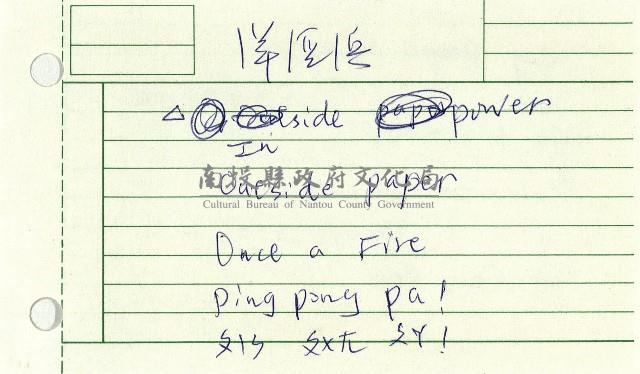 洋涇浜
△ side power
In
南投縣政府文化局
outside paper
Cultural Bureau of Nantou County Government
Once a Fire
Ping pong pa!
ㄆㄨㄤ ㄆㄚ!